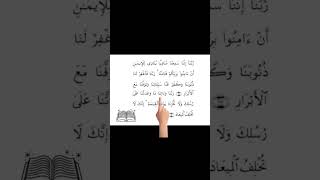 رَّبَّنَا إِنَّنَا سَمِعْنَا مُنَادِيًا يُنَادِى لِلْإِيمَٰنِ
أَنْ ءَامِنُوا۟ بِرَبِّكُمْ فَـَٔامَنَّا ۚ رَبَّنَا فَٱغْفِرْ لَنَا
ذُنُوبَنَا وَكَفِّرْ عَنَّا سَيِّـَٔاتِنَا وَتَوَفَّنَا مَعَ
ٱلْأَبْرَارِ رَبَّنَا وَءَاتِنَا مَا وَعَدتَّنَا عَلَىٰ
رُسُلِكَ وَلَا تُخْزِنَا يَوْمَ ٱلْقِيَٰمَةِ ۗ إِنَّكَ لَا
تُخْلِفُ ٱلْمِيعَادَ